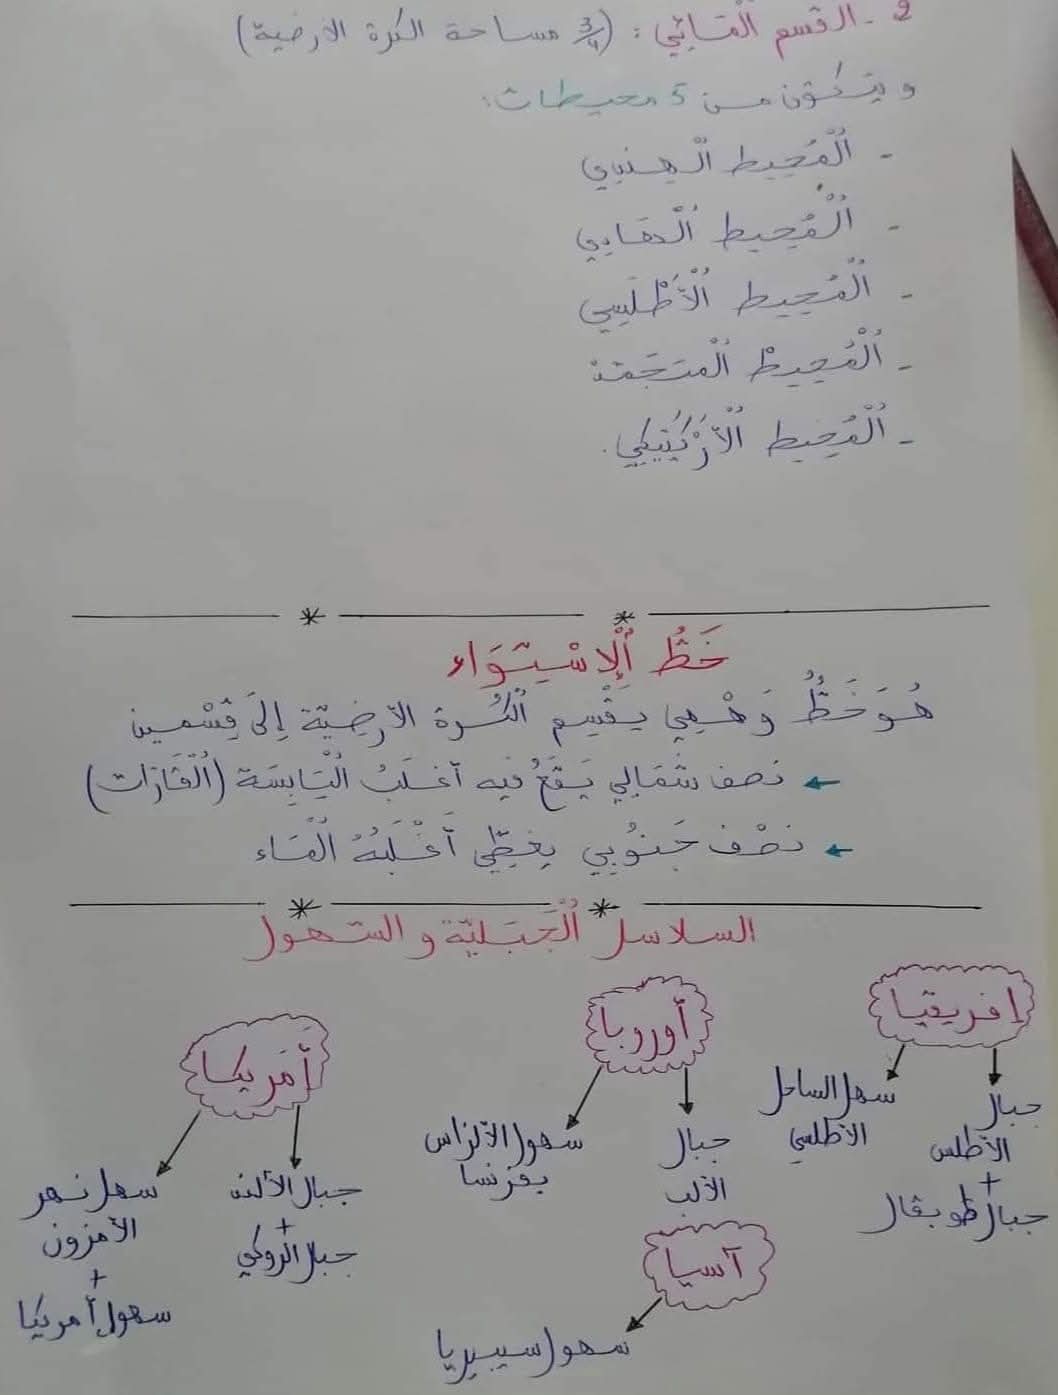 2 - القسم المائي : (3/4 مساحة الكرة الارضية)
و يتكون من 5 محيطات:
- اَلْمُحِيط الهندي
- اَلْمُحِيط الهادي
- اَلْمُحِيط اَلْأَطْلَسِي
- اَلْمُحِيطْ اَلْمتَجَمد
- اَلْمُحِيط اَلْأَرْكْتِيكِي.
خَطُّ اَلْإسْتِوَاء
هُوَ خَطُّ وَهْمِي يقْسِم الْكُرة الأرضيّة إِلَى قِسْمين
← نصف شمَالي يَقَعُ فيه أغلَبُ الْيَابِسَة (اَلْقَارَات)
← نصْف جَنُوبي يغطِّي أَغْلَبَهُ الْمَاء
السلاسل اَلْجَبَليّة و السّهول
إفريقيا
أوروبا
أمَريكا
جبال
الأطلس
+
جبال طوبقال
سهل الساحل
الأطلسي
جبال
الألب
سهول الألزاس
بفرنسا
جبال الأند
+
جبال الروكي
سهل نهر
الأمزون
+
سهول أمريكا
آسيا
سهول سيبيريا